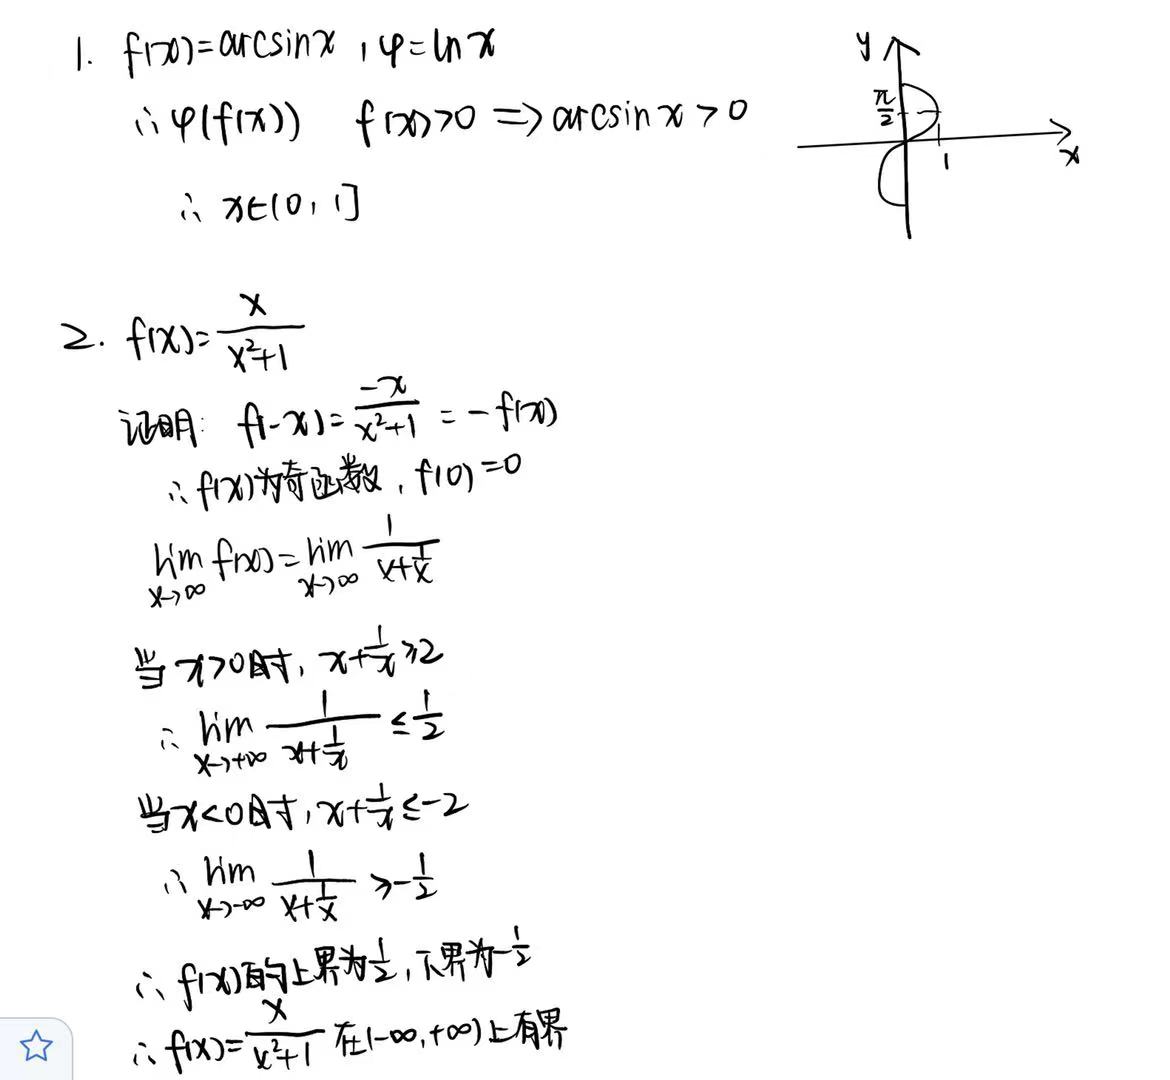 1. f(x)=arcsinx , φ=lnx
∴ φ(f(x)) f(x)>0 ⟹ arcsinx>0
∴ x∈(0, 1]
y
π/2
1
x
2. f(x)= x/(x²+1)
证明: f(-x)= -x/(x²+1) = -f(x)
∴ f(x)为奇函数, f(0)=0
lim x→∞ f(x)= lim x→∞ 1/(x+1/x)
当x>0时, x+1/x ≥2
∴ lim x→+∞ 1/(x+1/x) ≤ 1/2
当x<0时, x+1/x ≤-2
∴ lim x→-∞ 1/(x+1/x) ≥ -1/2
∴ f(x)的上界为1/2, 下界为-1/2
∴ f(x)= x/(x²+1) 在(-∞,+∞)上有界